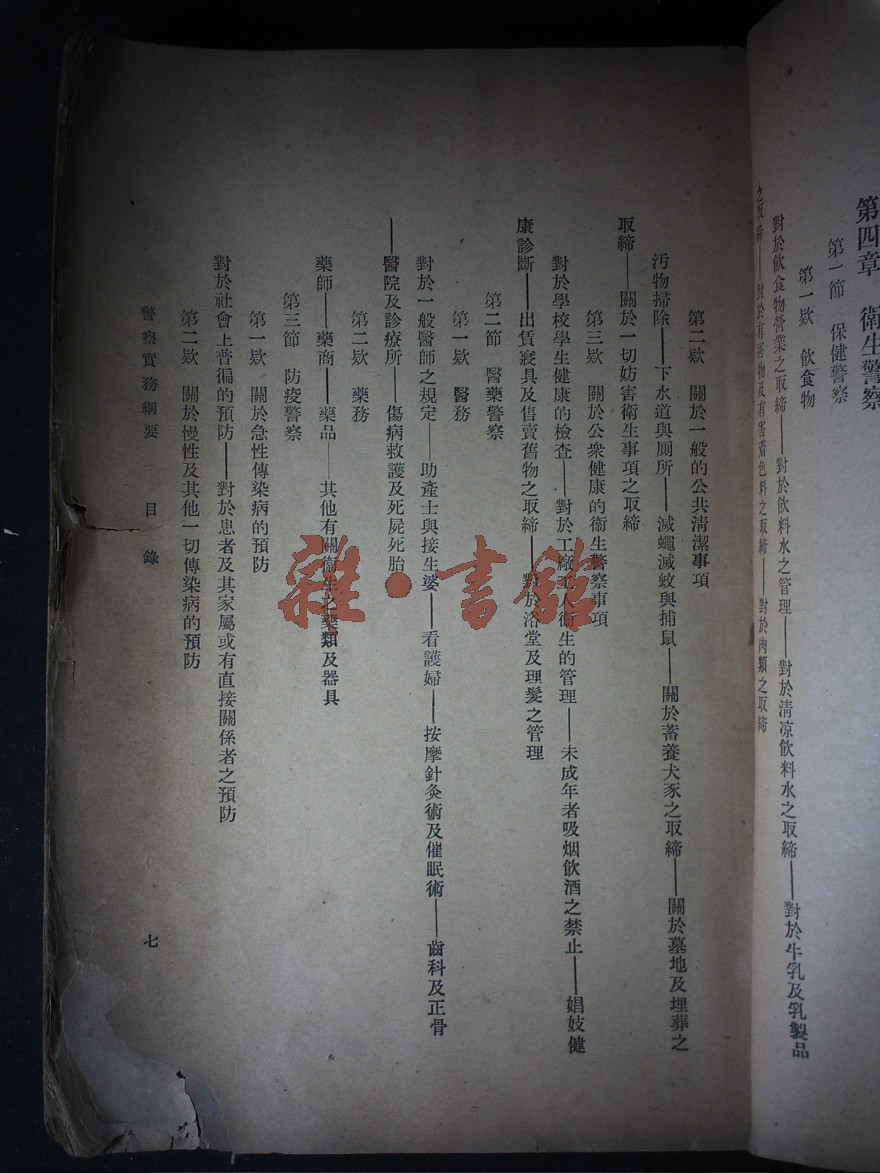 第四章　衛生警察
第一節　保健警察
第一欵　飲食物
對於飲食物營業之取締——對於飲料水之管理——對於清凉飲料水之取締——對於牛乳及乳製品
之取締——對於有害物及有害着色料之取締——對於肉類之取締
第二欵　關於一般的公共清潔事項
汚物掃除——下水道與厠所——滅蠅滅蚊與捕鼠——關於蓄養犬豕之取締——關於墓地及埋葬之
取締——關於一切妨害衛生事項之取締
第三欵　關於公衆健康的衛生警察事項
對於學校學生健康的檢查——對於工廠工人衛生的管理——未成年者吸烟飲酒之禁止——娼妓健
康診斷——出賃寢具及售賣舊物之取締——對於浴堂及理髮之管理
第二節　醫藥警察
第一欵　醫務
對於一般醫師之規定——助產士與接生婆——看護婦——按摩針灸術及催眠術——齒科及正骨
——醫院及診療所——傷病救護及死屍死胎
第二欵　藥務
藥師——藥商——藥品——其他有關衛生之藥類及器具
第三節　防疫警察
第一欵　關於急性傳染病的預防
對於社會上普徧的預防——對於患者及其家屬或有直接關係者之預防
第二欵　關於慢性及其他一切傳染病的預防
警察實務綱要　目錄　七
雜·書館